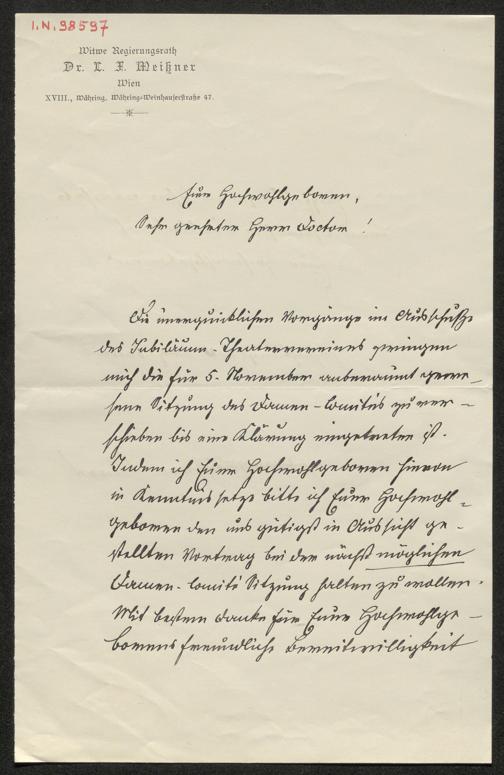 I.N. 98597
Witwe Regierungsrath
Dr. L. F. Meißner
Wien
XVIII., Währing, Währing-Weinhauserstraße 47.
Euer Hochwohlgeboren,
Sehr geehrter Herr Doctor!
Die unerquicklichen Vorgänge im Ausschuße
des Jubiläum-Theatervereines zwingen
mich die für 5. November anberaumt gewe-
sene Sitzung des Damen-Comités zu ver-
schieben bis eine Klärung eingetreten ist.
Indem ich Euer Hochwohlgeboren hievon
in Kenntniß setze bitte ich Euer Hochwohl-
geboren den uns gütigst in Aussicht ge-
stellten Vortrag bei der nächst möglichen
Damen-Comité Sitzung halten zu wollen.
Mit bestem Danke für Euer Hochwohlge-
borens freundliche Bereitwilligkeit